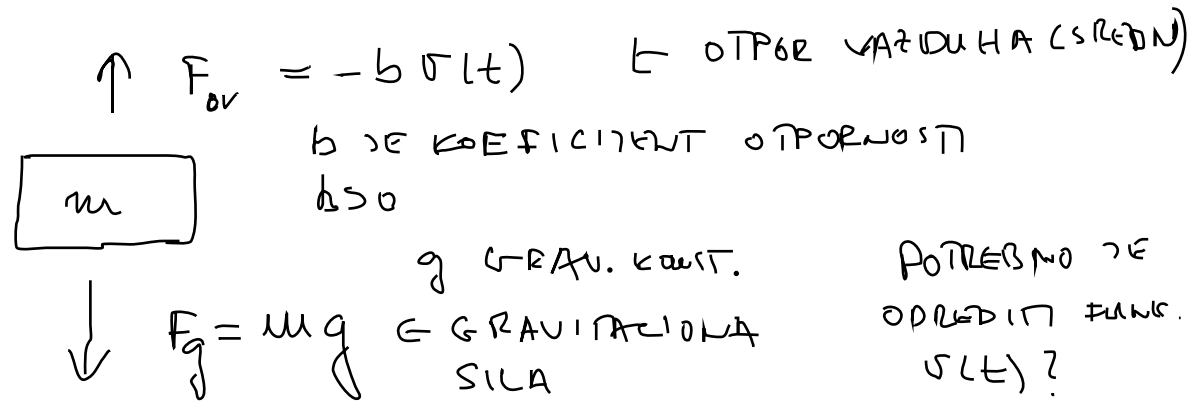 F_ov = -b v(t) ← OTPOR VAZDUHA (SREDIN)
b JE KOEFICIJENT OTPORNOSTI
b>0
m
g GRAV. KONST.
F_g = mg ← GRAVITACIONA
SILA
POTREBNO JE
ODREDITI FUNK.
v(t)?